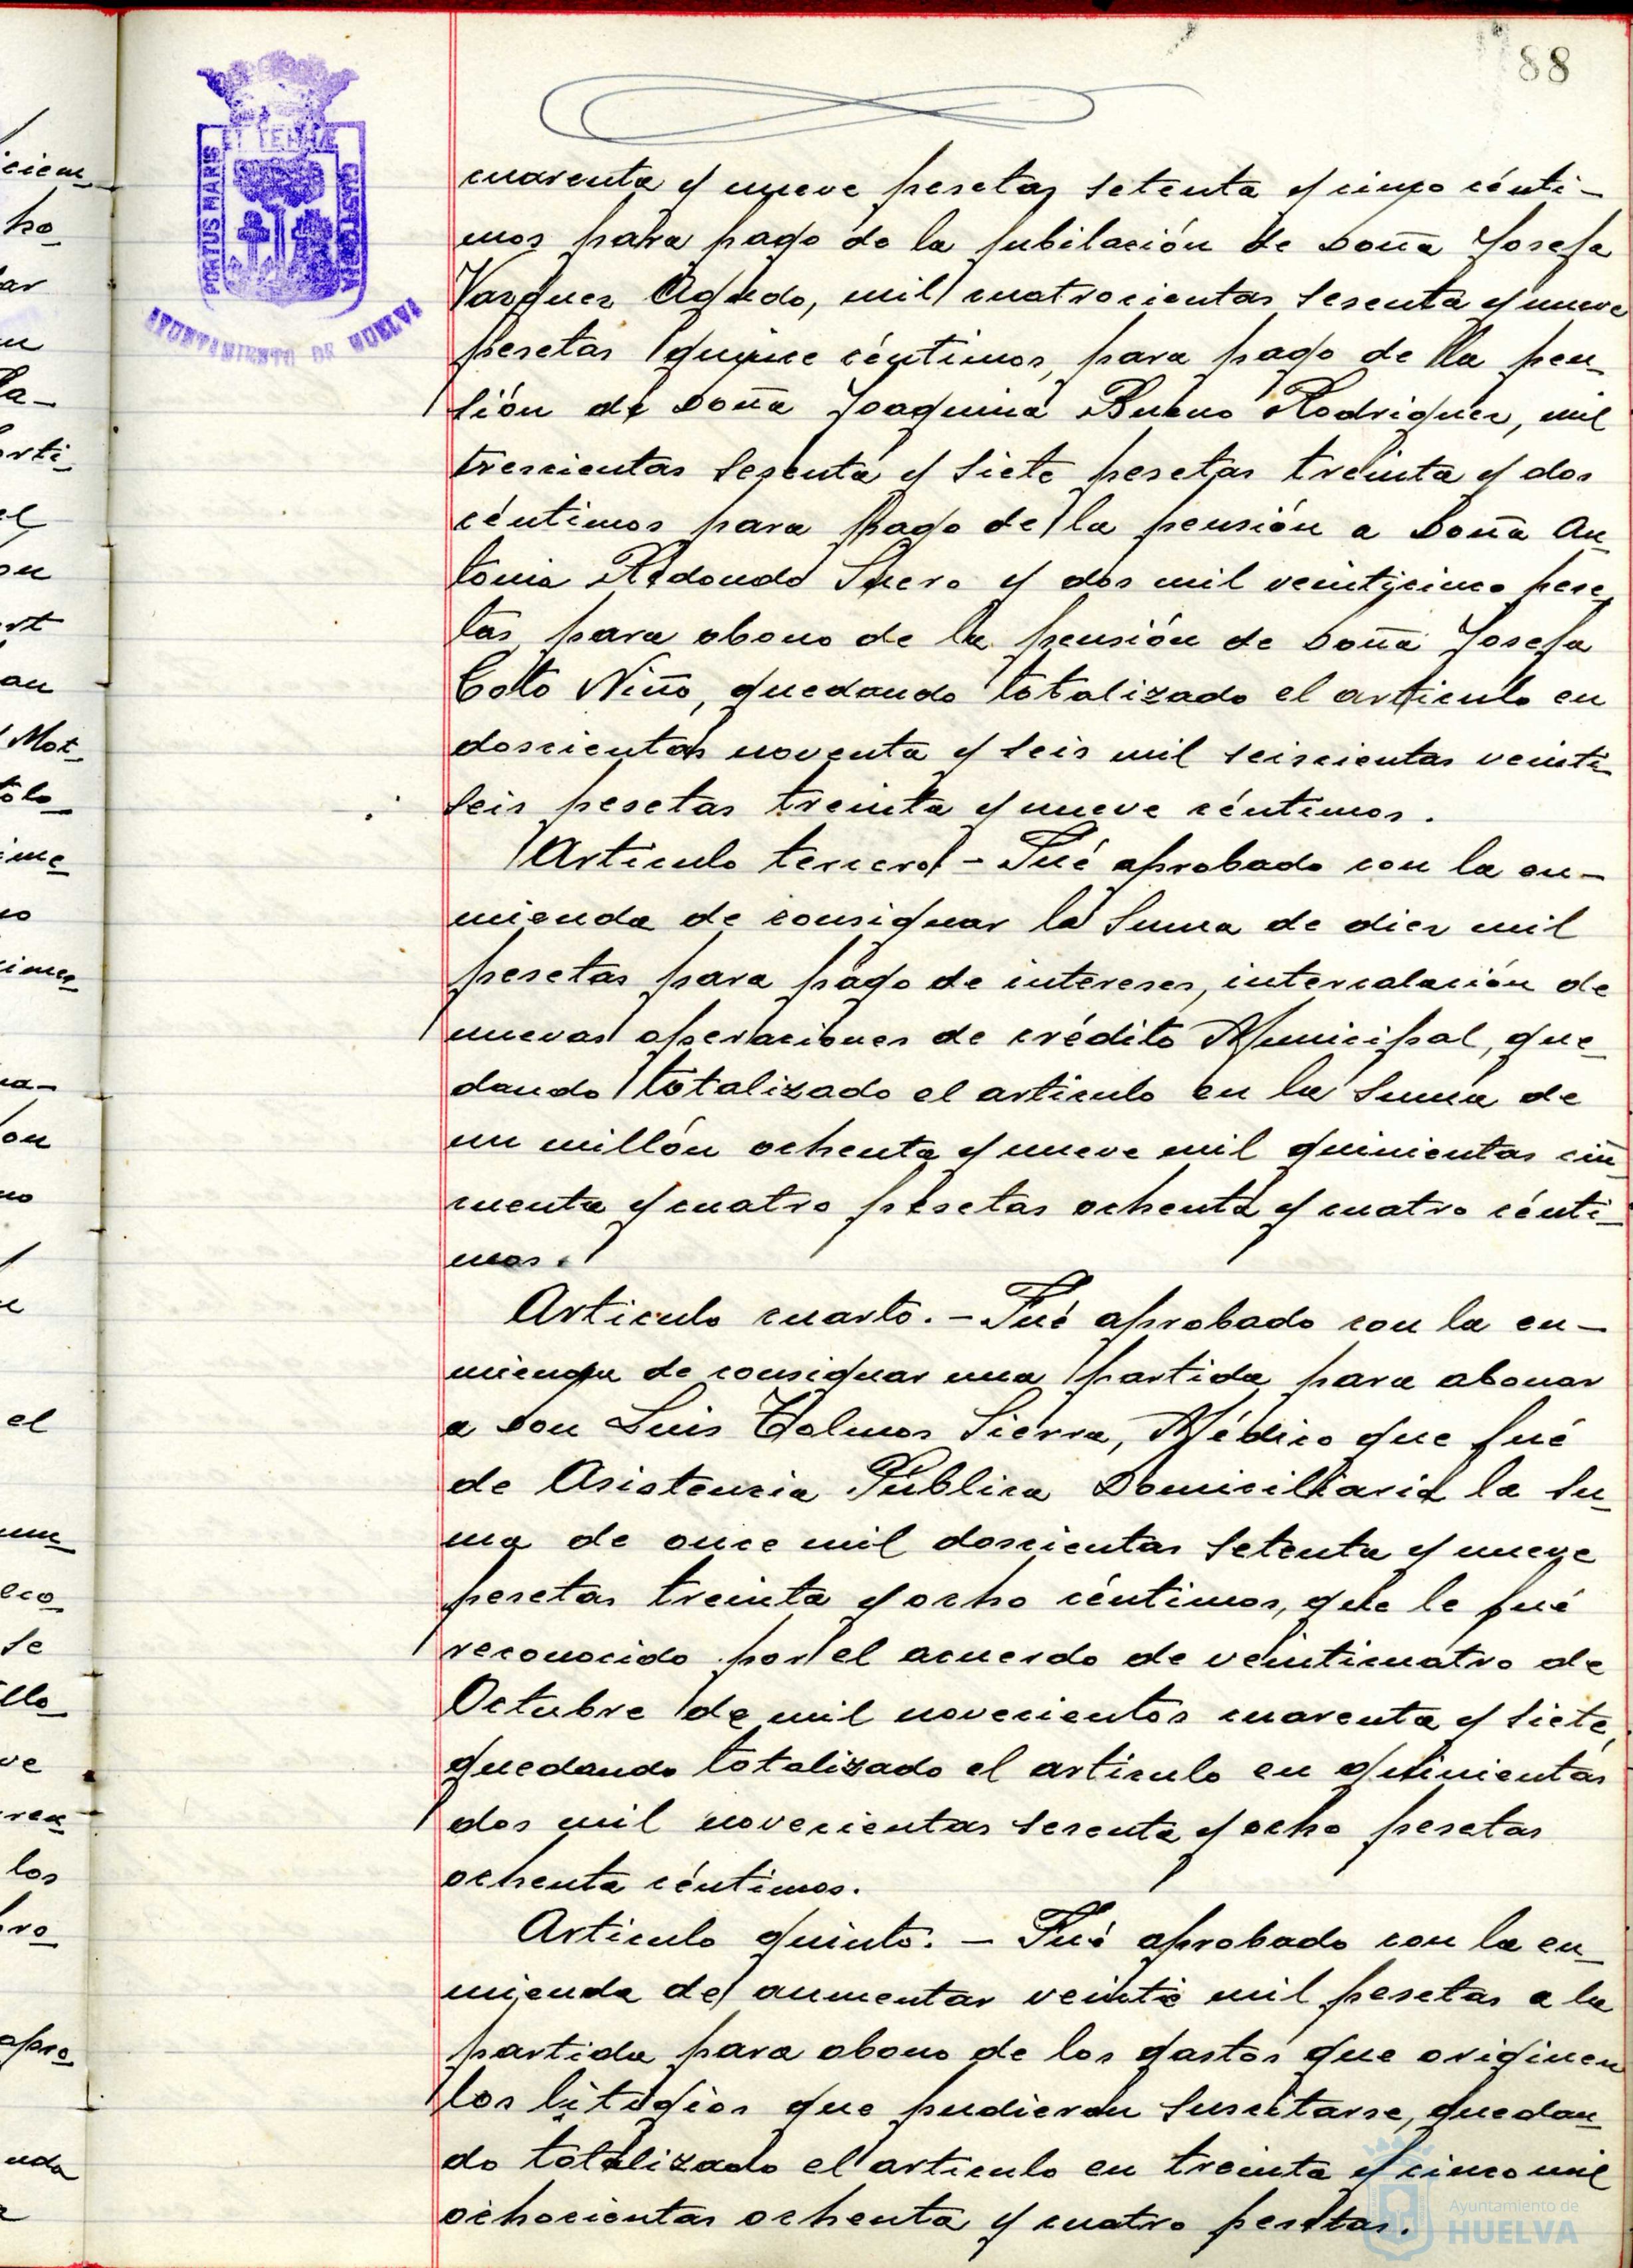 88
PORTUS MARIS ET TERRAE CUSTODIA
AYUNTAMIENTO DE HUELVA
cuarenta y nueve pesetas setenta y cinco cénti-
mos para pago de la jubilación de Doña Josefa
Vazquez Aguedo, mil cuatrocientas sesenta y nueve
pesetas quince céntimos, para pago de la pen-
sión de Doña Joaquina Bueno Rodriguez, mil
trescientas sesenta y siete pesetas treinta y dos
céntimos para pago de la pensión a Doña An-
tonia Redondo Suero y dos mil veinticinco pese-
tas para abono de la pensión de Doña Josefa
Coto Niño, quedando totalizado el articulo en
doscientas noventa y seis mil seiscientas veinti-
seis pesetas treinta y nueve céntimos.
Articulo tercero - Fué aprobado con la en-
mienda de consignar la suma de diez mil
pesetas para pago de intereses, intercalación de
nuevas operaciones de crédito Municipal, que-
dando totalizado el articulo en la suma de
un millón ochenta y nueve mil quinientas cin-
cuenta y cuatro pesetas ochenta y cuatro cénti-
mos.
Articulo cuarto. - Fué aprobado con la en-
mienda de consignar una partida para abonar
a Don Luis Tolmos Sierra, Médico que fué
de Asistencia Pública Domiciliaria la su-
ma de once mil doscientas setenta y nueve
pesetas treinta y ocho céntimos, que le fué
reconocido por el acuerdo de veinticuatro de
Octubre de mil novecientos cuarenta y siete,
quedando totalizado el articulo en quinientas
dos mil novecientas sesenta y ocho pesetas
ochenta céntimos.
Articulo quinto. - Fué aprobado con la en-
mienda de aumentar veinte mil pesetas a la
partida para abono de los gastos que originen
los litigios que pudieran suscitarse, quedan-
do totalizado el articulo en treinta y cinco mil
ochocientas ochenta y cuatro pesetas.
Ayuntamiento de
HUELVA